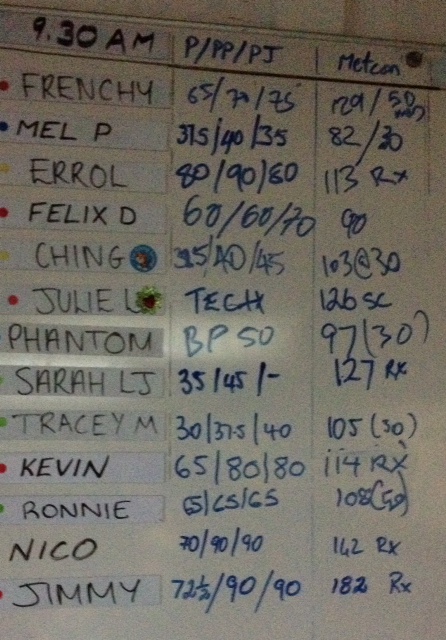 9.30 AM P/PP/PJ Metcon
FRENCHY 65/70/75 129/50
MEL P 37.5/40/35 82/30
ERROL 80/90/80 113 Rx
FELIX D 60/60/70 90
CHING /40/45 103@30
JULIE L TECH 126 SC
PHANTOM BP 50 97(30)
SARAH LJ 35/45/- 127 Rx
TRACEY M 30/37.5/40 105 (30)
KEVIN 65/80/80 114 RX
RONNIE 65/65/65 108(50)
NICO 70/90/90 142 Rx
JIMMY 72½/90/90 182 Rx